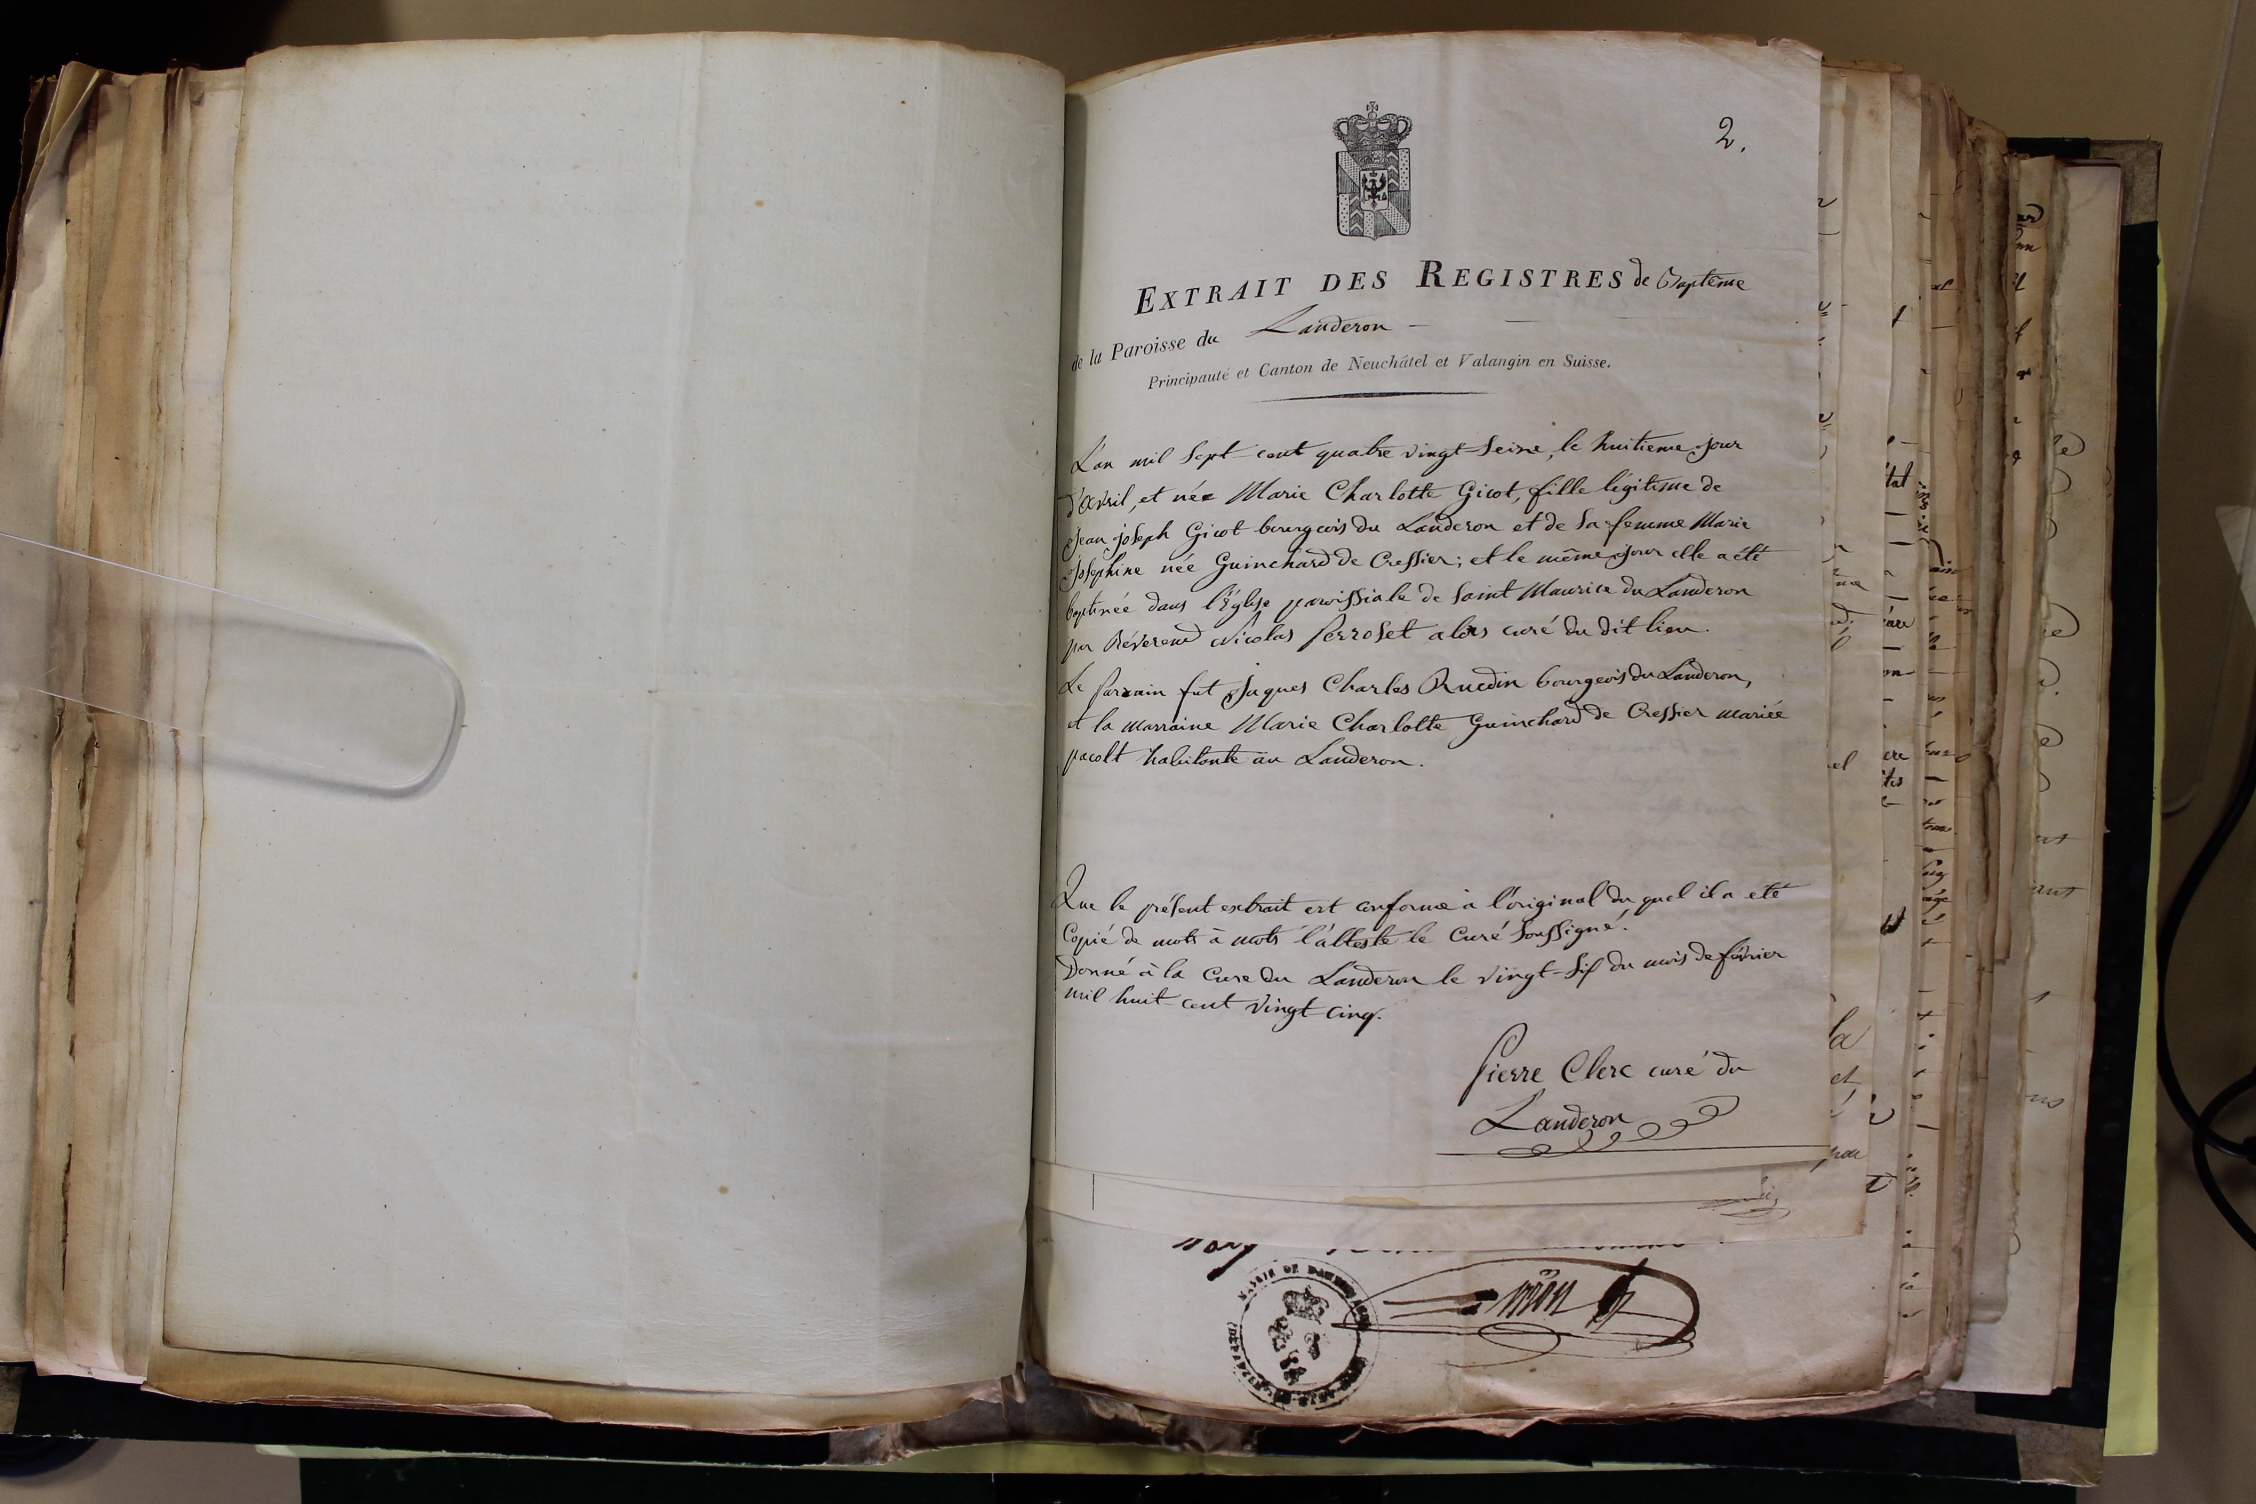 2.
EXTRAIT DES REGISTRES de Baptême
de la Paroisse du Landeron
Principauté et Canton de Neuchâtel et Valangin en Suisse.
L'an mil sept-cent quatre vingt-seize, le huitieme jour
d'avril, et née Marie Charlotte Gicot, fille légitime de
Jean joseph Gicot bourgeois du Landeron et de sa femme Marie
Josephine née Guinchard de Cressier; et le même jour elle a été
baptisée dans l'Église paroissiale de Saint Maurice du Landeron
par Révérend Nicolas Perroset alors curé du dit lieu.
Le parrain fut Jaques Charles Ruedin bourgeois du Landeron,
et la marraine Marie Charlotte Guinchard de Cressier mariée
pacolt habitante au Landeron.
Que le présent extrait est conforme à l'original du quel il a eté
Copié de mots à mots l'atteste le Curé soussigné.
Donné à la Cure du Landeron le vingt-six du mois de février
mil huit-cent vingt cinq.
Pierre Clerc curé du
Landeron